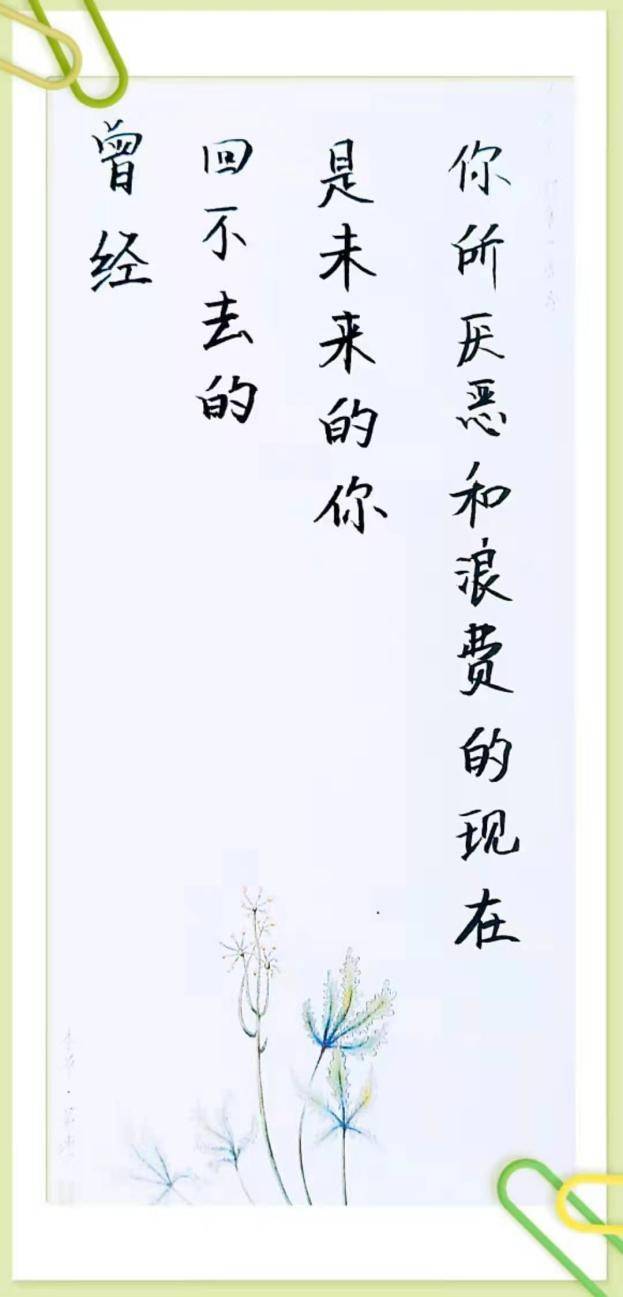 你所厌恶和浪费的现在
是未来的你
回不去的
曾经